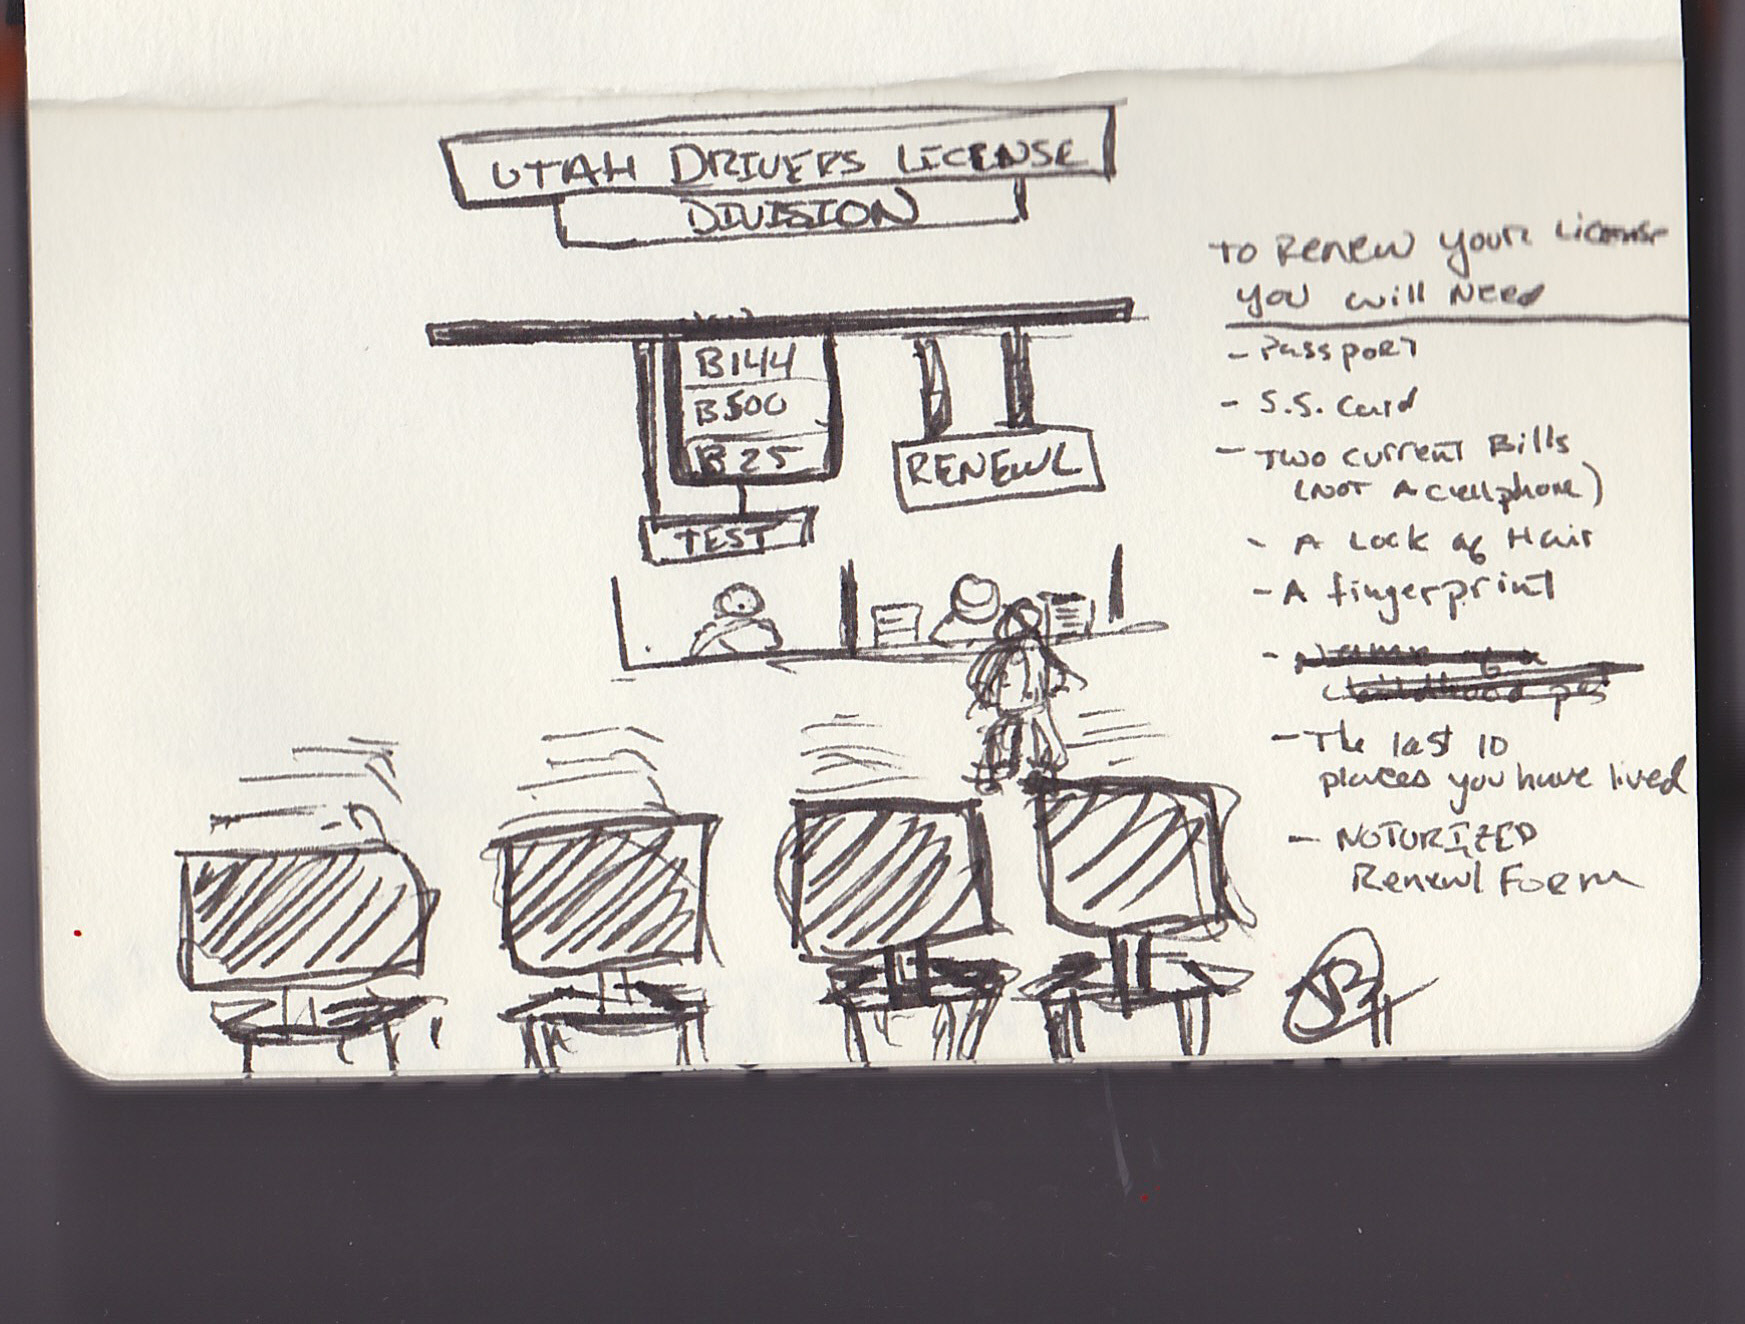 UTAH DRIVERS LICENSE
DIVISION
B144
B500
B25
TEST
RENEWL
TO Renew your License
you will Need
- Passport
- S.S. Card
- Two current Bills
(NOT A cellphone)
- A Lock of Hair
- A fingerprint
- Name of a
childhood pet
- The last 10
places you have lived
- NOTURIZED
Renewl Form
JB